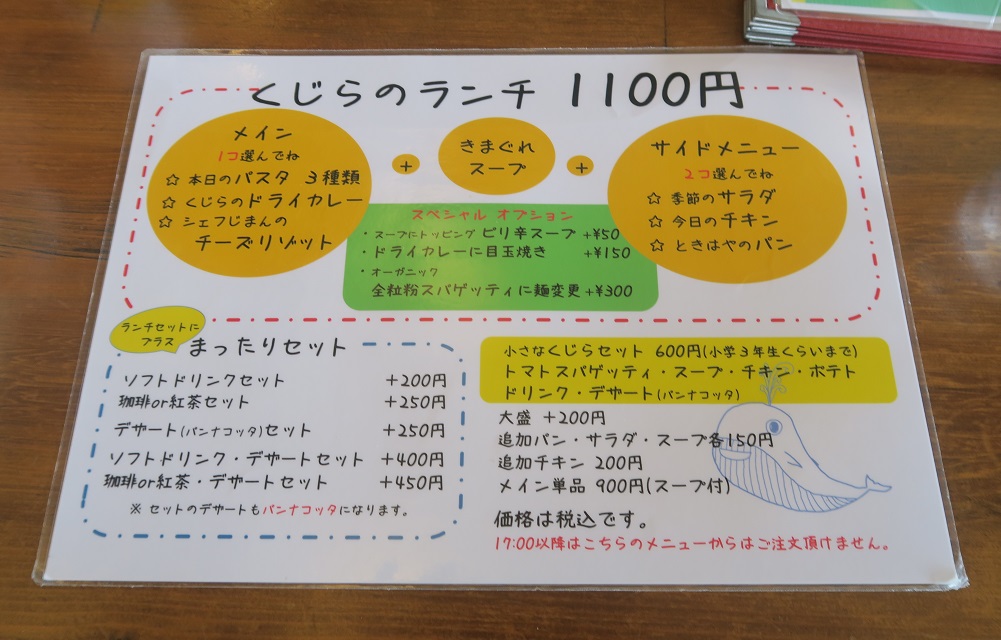 くじらのランチ 1100円
メイン
1コ選んでね
☆ 本日のパスタ 3種類
☆ くじらのドライカレー
☆ シェフじまんの
チーズリゾット
+
きまぐれ
スープ
+
サイドメニュー
2コ選んでね
☆ 季節のサラダ
☆ 今日のチキン
☆ ときはやのパン
スペシャル オプション
・スープにトッピング ピリ辛スープ +¥50
・ドライカレーに目玉焼き +¥150
・オーガニック
全粒粉スパゲッティに麺変更 +¥300
ランチセットに
プラス
まったりセット
ソフトドリンクセット +200円
珈琲or紅茶セット +250円
デザート(パンナコッタ)セット +250円
ソフトドリンク・デザートセット +400円
珈琲or紅茶・デザートセット +450円
※ セットのデザートもパンナコッタになります。
小さなくじらセット 600円(小学3年生くらいまで)
トマトスパゲッティ・スープ・チキン・ポテト
ドリンク・デザート(パンナコッタ)
大盛 +200円
追加パン・サラダ・スープ各150円
追加チキン 200円
メイン単品 900円(スープ付)
価格は税込です。
17:00以降はこちらのメニューからはご注文頂けません。